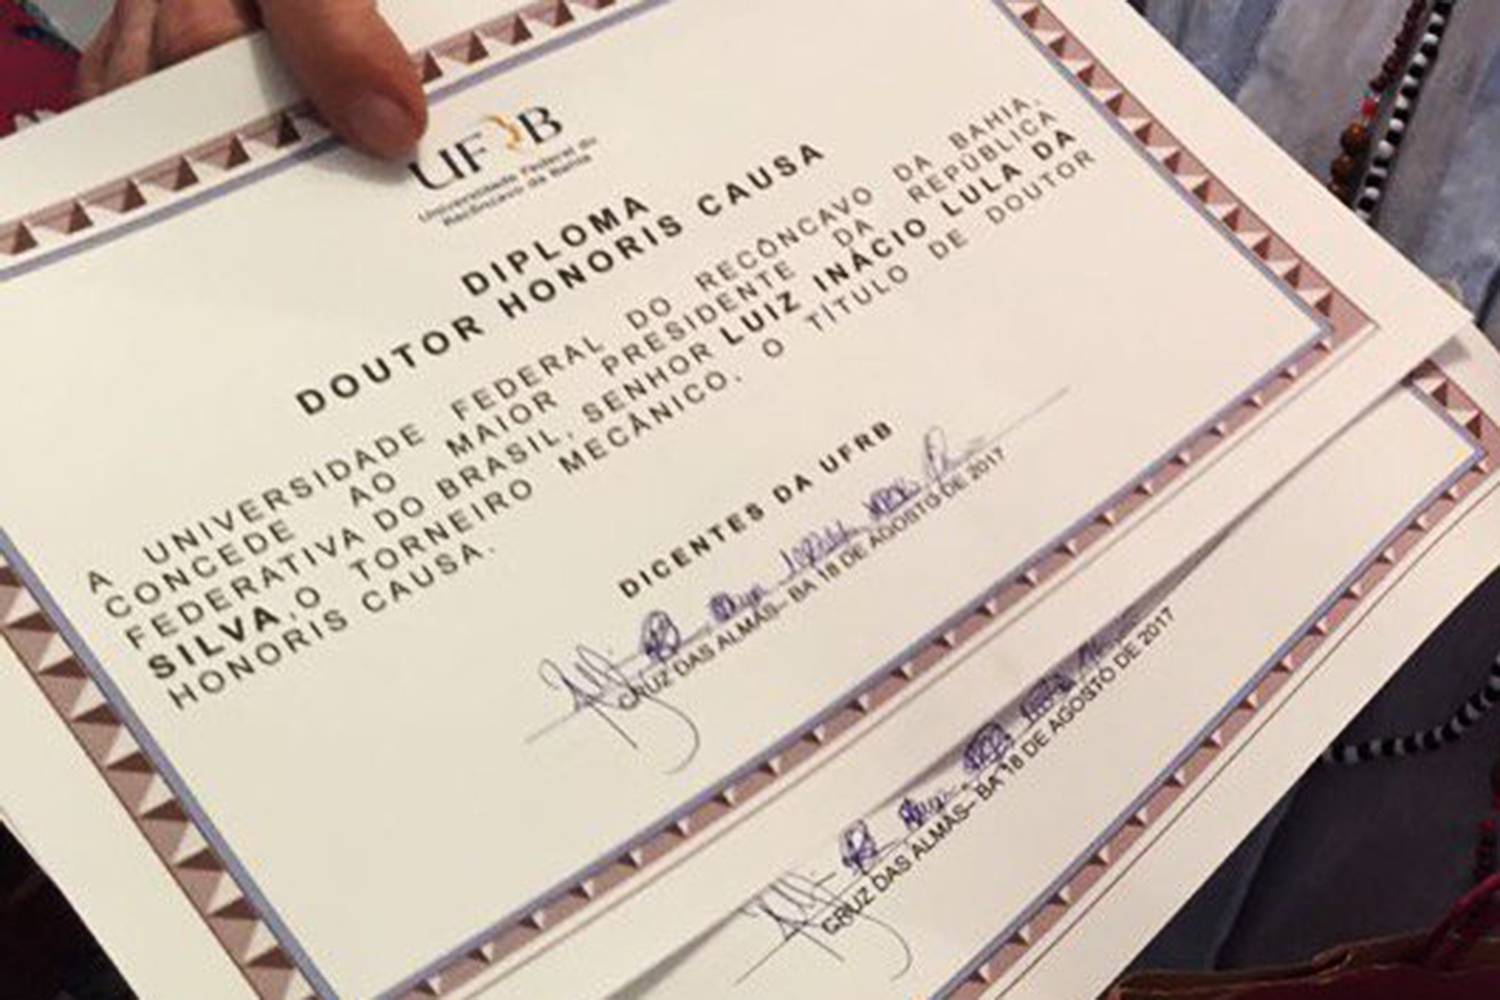 UFRB
Universidade Federal do
Recôncavo da Bahia
DIPLOMA
DOUTOR HONORIS CAUSA
A UNIVERSIDADE FEDERAL DO RECÔNCAVO DA BAHIA,
CONCEDE AO MAIOR PRESIDENTE DA REPÚBLICA
FEDERATIVA DO BRASIL, SENHOR LUIZ INÁCIO LULA DA
SILVA,O TORNEIRO MECÂNICO, O TÍTULO DE DOUTOR
HONORIS CAUSA.
DICENTES DA UFRB
CRUZ DAS ALMAS– BA 18 DE AGOSTO DE 2017
CRUZ DAS ALMAS– BA 18 DE AGOSTO DE 2017